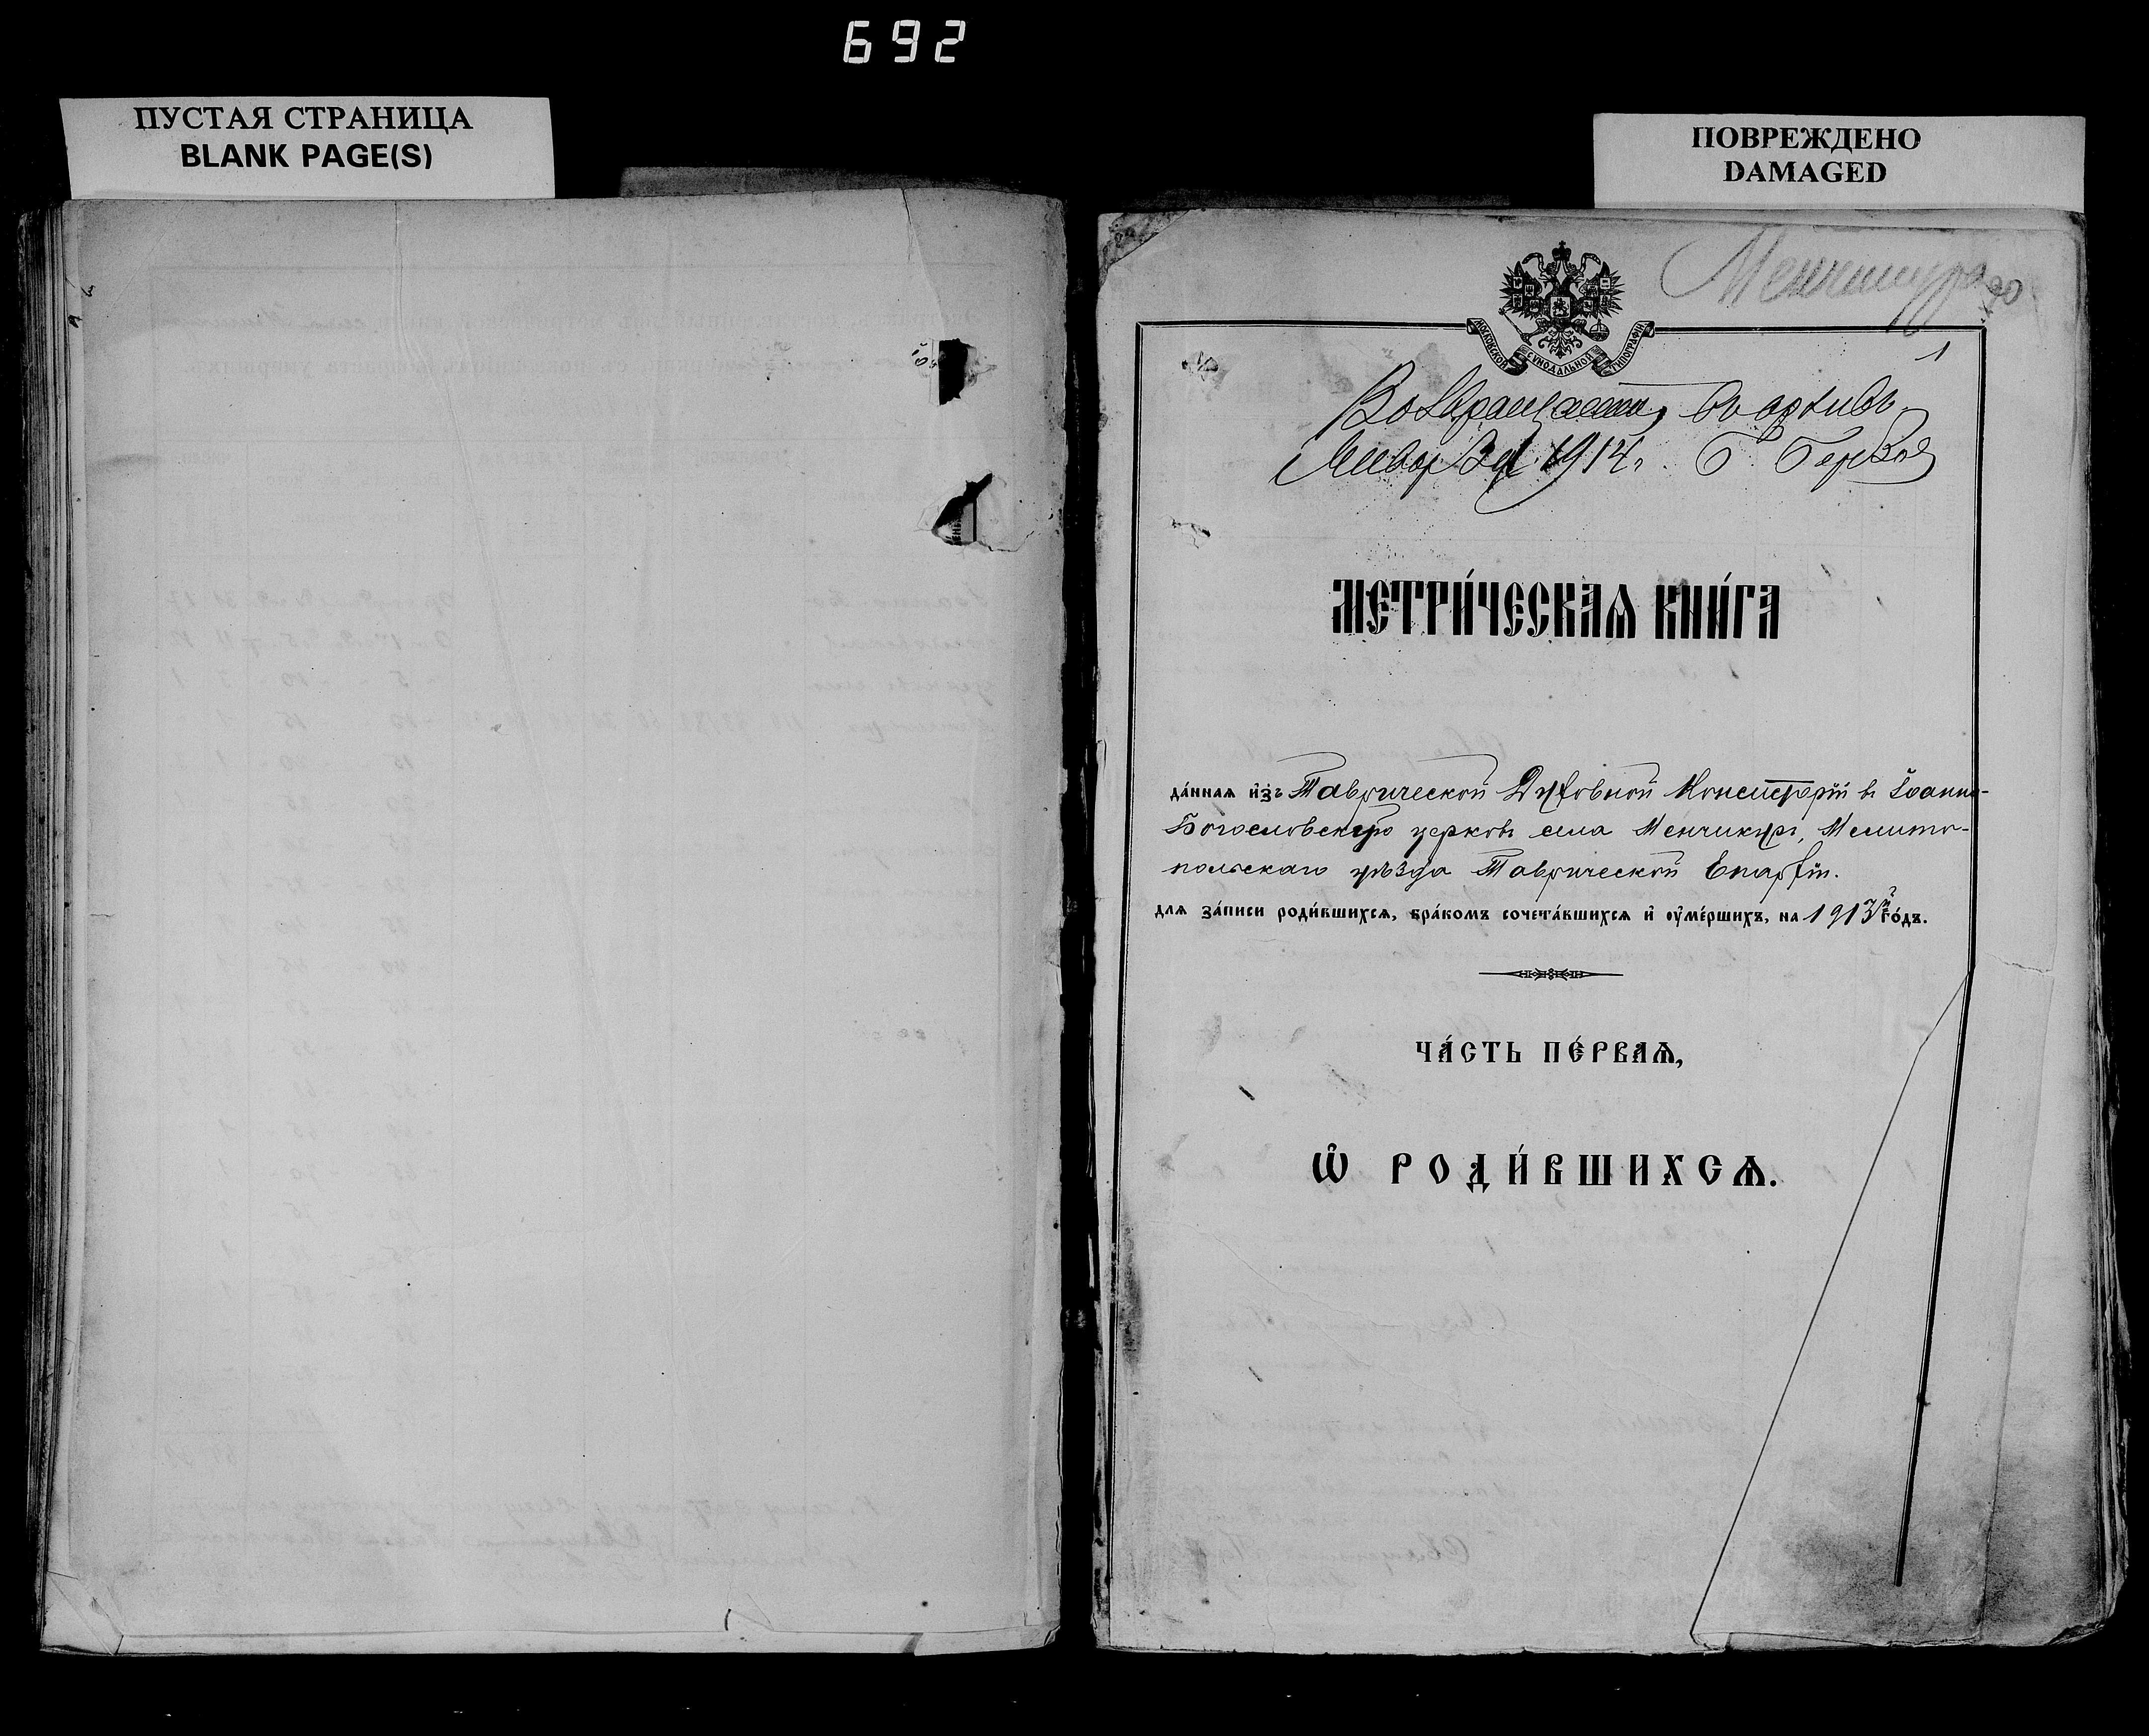 692
ПУСТАЯ СТРАНИЦА
BLANK PAGE(S)
ПОВРЕЖДЕНО
DAMAGED
Менчикур
90
МОСКОВСКОЙ СѴНОДАЛЬНОЙ ТИПОГРАФІИ
1
Возвращается въ архивъ
1914
МЕТРИ́ЧЕСКАѦ КНИ́ГА
да́ннаѧ и҆зъ Таврической Духовной Консисторіи въ Іоанно-
Богословскую церковь села Менчикуръ, Мелито-
польскаго уѣзда Таврической Епархіи.
длѧ за́писи роди́вшихсѧ, бра́комъ сочета́вшихсѧ и҆ оу҆ме́ршихъ, на 1913й го́дъ.
ЧА́СТЬ ПЕ́РВАѦ,
Ѡ҆ РОДИ́ВШИХСѦ.